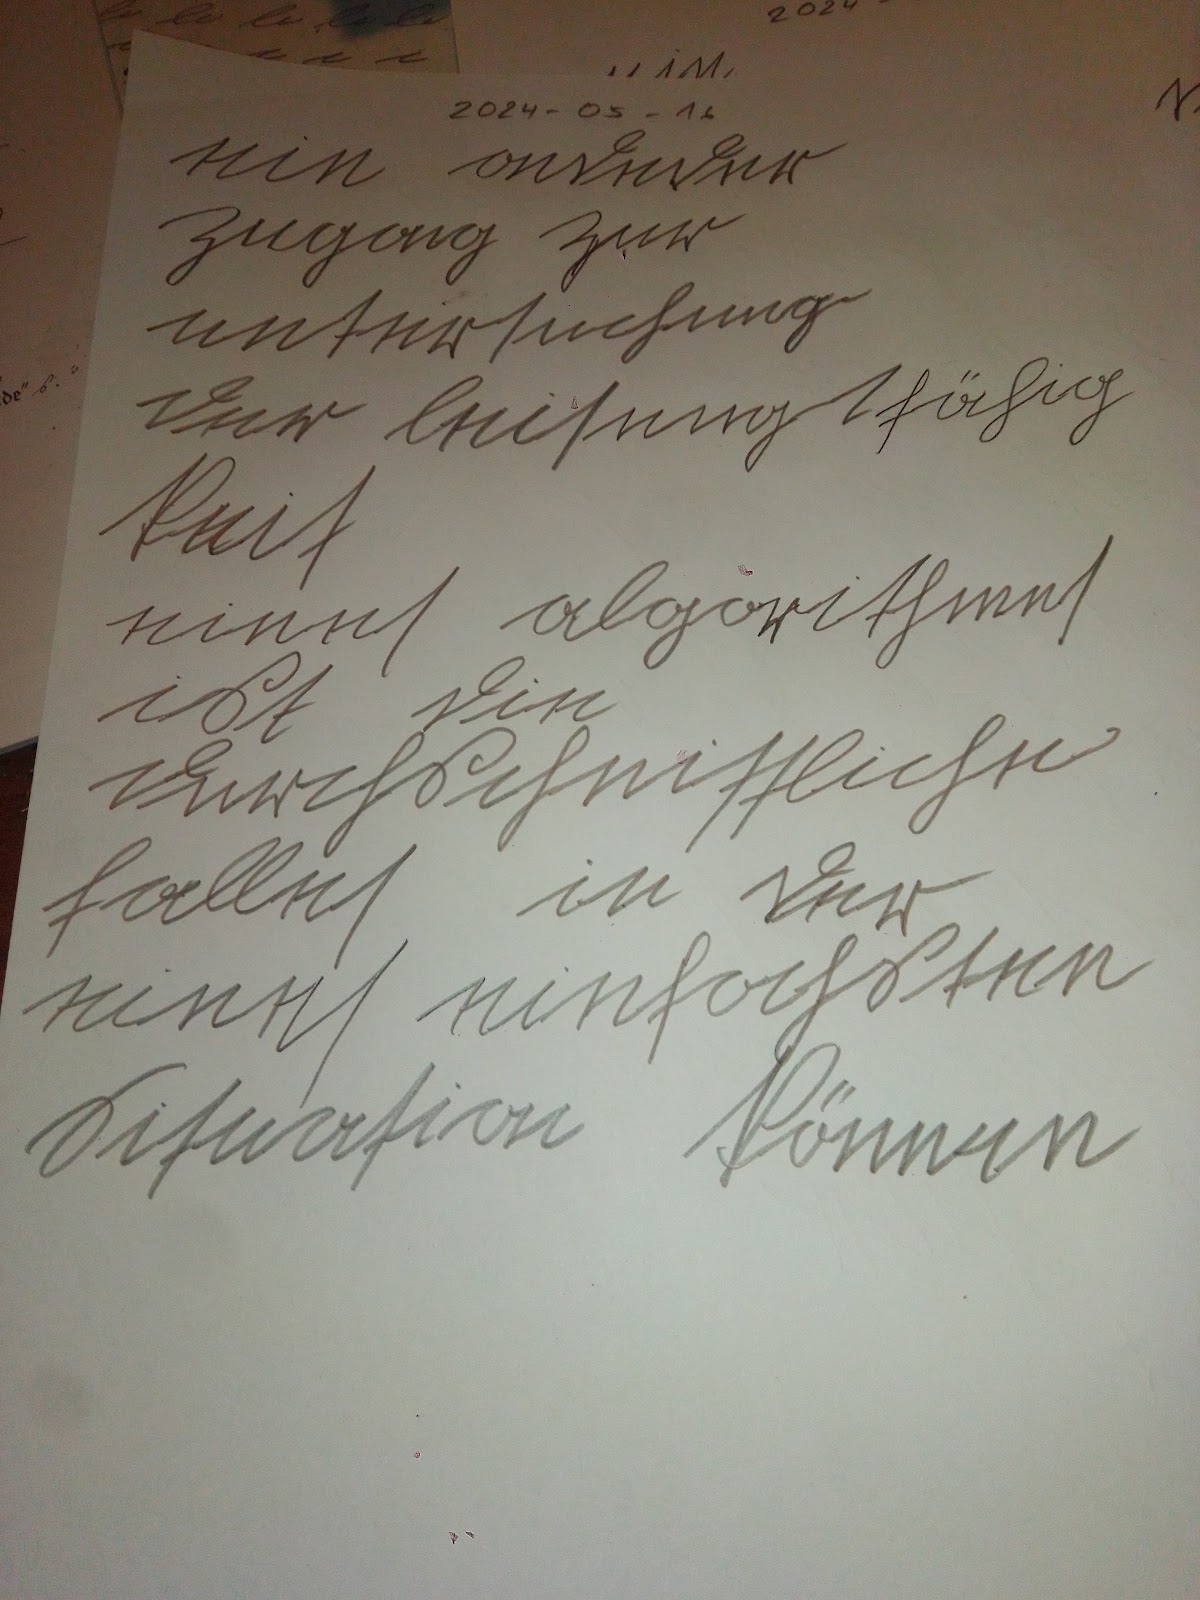 2024-
" IM.
2024-05-16
N.
ein anderer
zugang zur
untersuchung
der leisungsfähig
keit
eines algorithmes
ist die
durchschnittliche
falles in der
eines einfachsten
situation können
de"